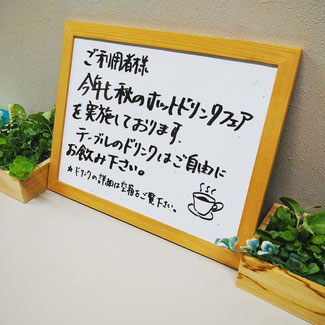 ご利用者様
今年も秋のホットドリンクフェア
を実施しております.
テーブルのドリンクはご自由に
お飲み下さい。
★ドリンクの詳細は空箱をご覧下さい。